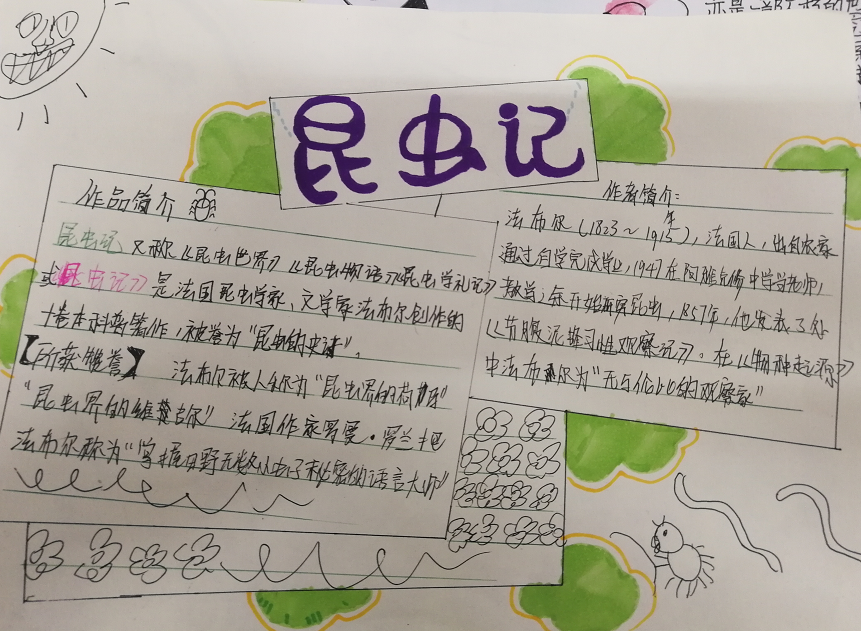 昆虫记
作品简介
昆虫记 又称《昆虫世界》《昆虫物语》《昆虫学札记》
或昆虫记》是法国昆虫学家、文学家法布尔创作的
十卷本科普著作,被誉为"昆虫的史诗"。
【所获雅誉】 法布尔被人称为"昆虫界的荷马"
"昆虫界的维吉尔" 法国作家罗曼·罗兰把
法布尔称为"掌握田野无数小虫子秘密的语言大师"
作者简介:
法布尔(1823~1915年),法国人,出自农家
通过自学完成学业,194在阿雅克修中学当老师,
教学;年开始研究昆虫,1857年,他发表了处
《节腹泥蜂习性观察记》。在《物种起源》
中法布尔为"无与伦比的观察家"